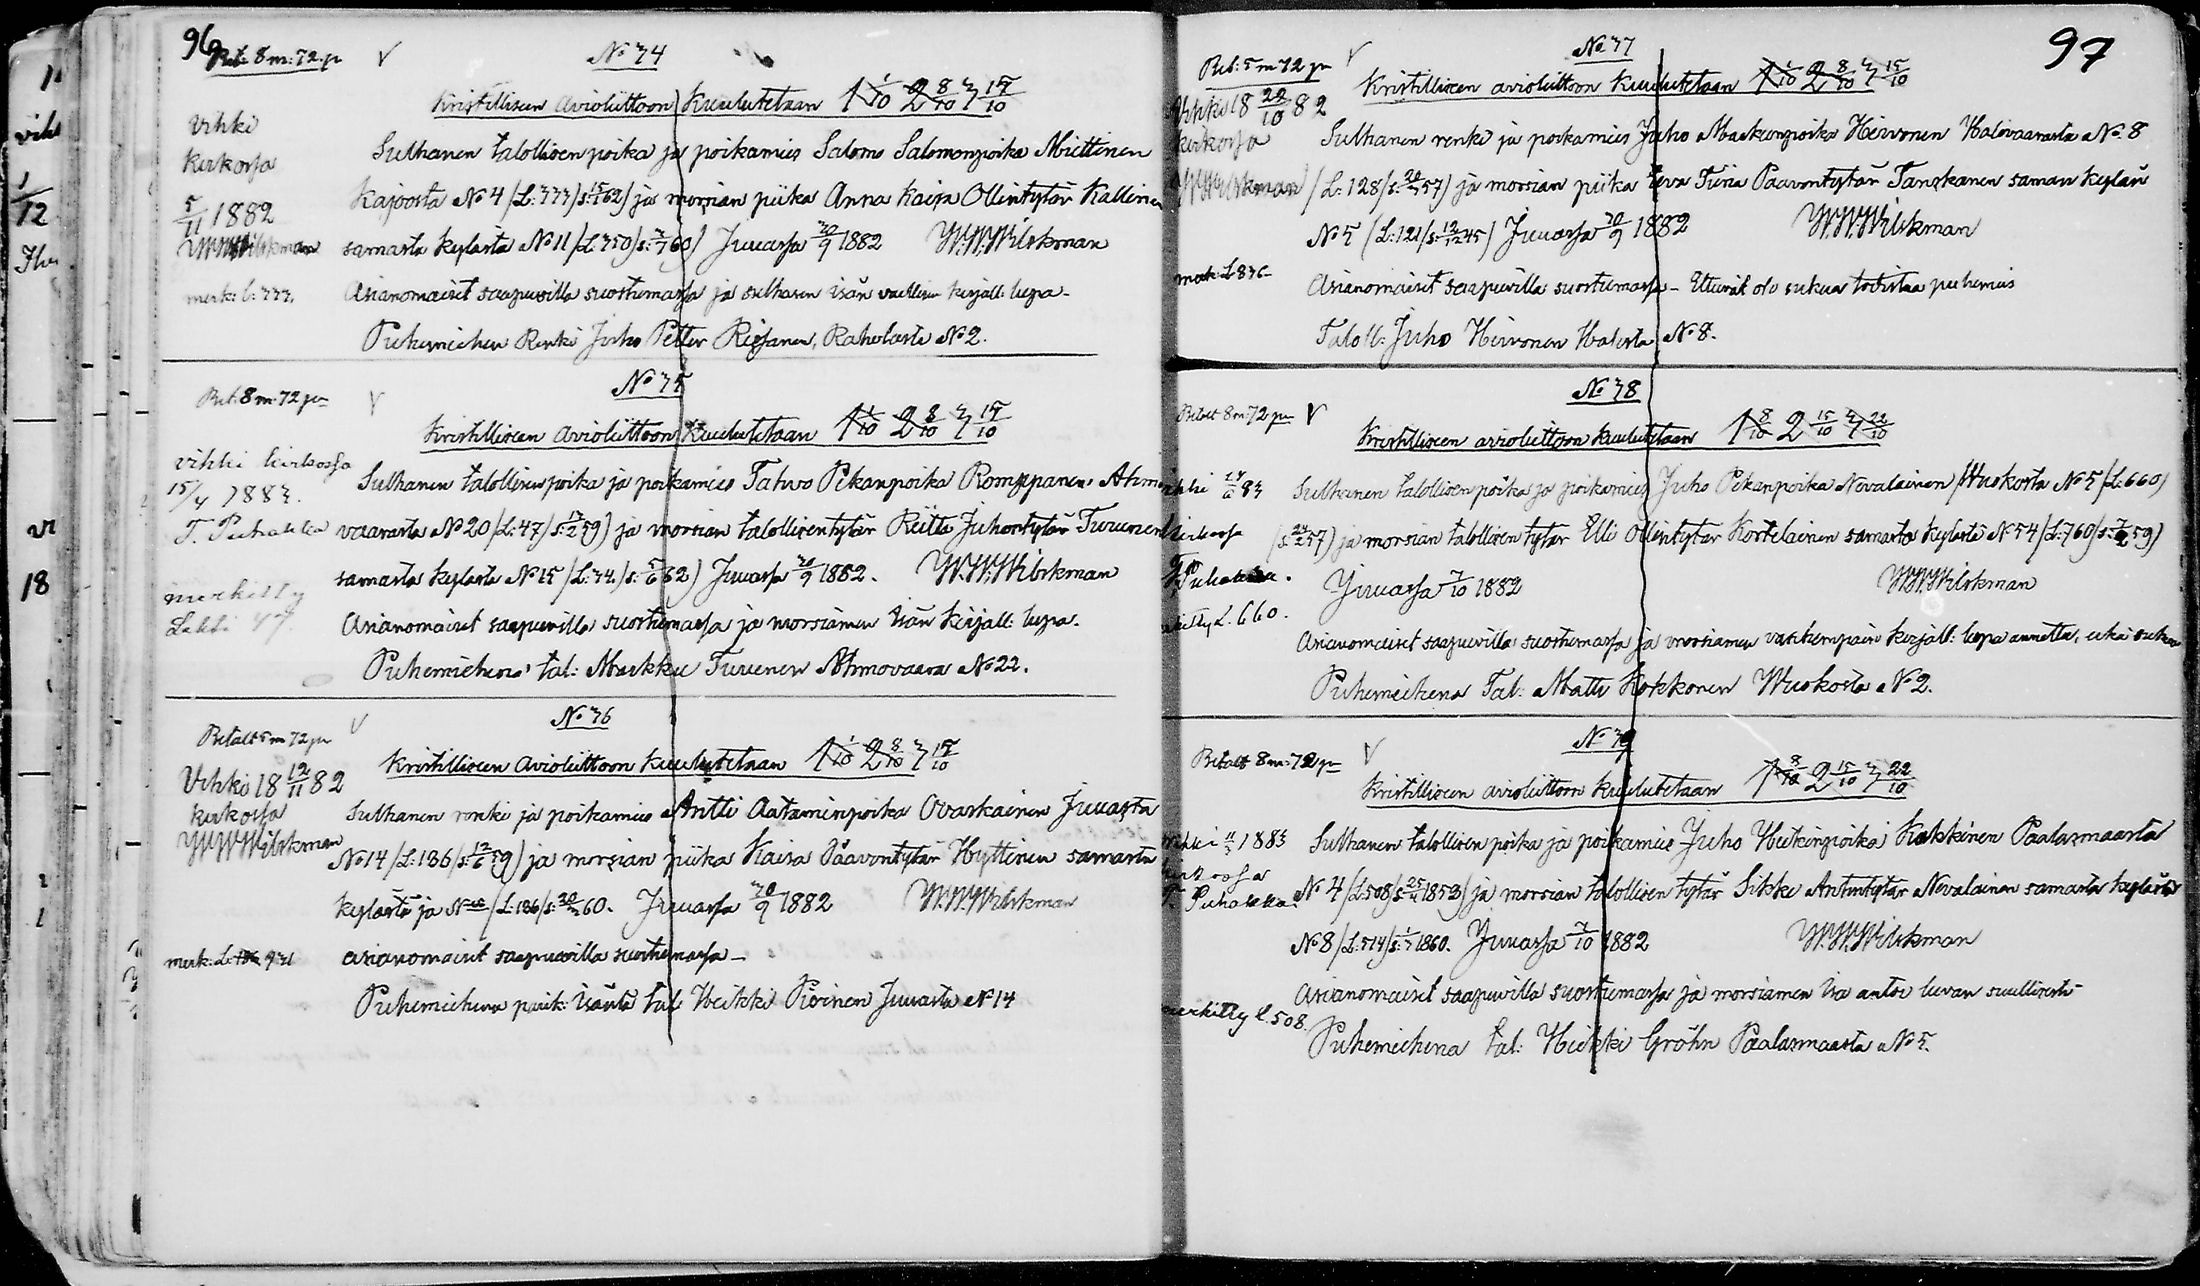 96
Bet. 8 m: 72 p
V
No 74
Kristilliseen avioliittoon kuulutetaan 1 1/10 2 8/10 3 15/10
Vihki
kirkossa
5/11 1882
W.W.Wilskman
merk: l: 333.
Sulhanen talollisen poika ja poikamies Salomo Salomonpoika Miettinen
Kajoosta No 4 /L: 333/s: 62) ja morsian piika Anna Kaisa Ollintytär Kallinen
samasta kylästä No 11 /L: 350/s: 60) Juuassa 30/9 1882 W.W.Wilskman
Asianomaiset saapuvilla suostumassa ja sulhasen isän kirjall: lupa-
Puhemiehen Renki Juho Petter Rissanen, Raholasta No 2.
Bet: 8 m: 72 p
V
No 75
Kristilliseen avioliittoon kuulutetaan 1 1/10 2 8/10 3 15/10
vihki kirkossa
15/4 1883.
T. Puhakka
merkitty
Lehti 47.
Sulhanen talollisen poika ja poikamies Tahvo Pekanpoika Romppanen Ahmo
vaarasta No 20 /L: 47/s: 59) ja morsian talollisentytär Riitta Juhontytär Turunen
samasta kylästä No 15 /L: 34/s: 5/6 62) Juuassa 30/9 1882. W.W.Wilskman
Asianomaiset saapuvilla suostumassa ja morsiamen isän kirjall: lupa.
Puhemiehenä tal: Markku Turunen Ahmovaara No 22.
Betalt 5 m 72 p
V
No 76
Kristilliseen avioliittoon kuulutetaan 1 1/10 2 8/10 3 15/10
Vihki 18 12/11 82
kirkossa
W.W.Wilskman
merk: L:
Sulhanen renki ja poikamies Antti Aataminpoika Ovaskainen Juuasta
No 14 /L: 186/s: 12/6 59) ja morsian piika Kaisa Paavontytär Hyttinen samasta
kylästä ja No /L: 186/s: 60. Juuassa 30/9 1882 W.W.Wilskman
asianomaiset saapuvilla suostumassa-
Puhemiehenä paik: isäntä tal Heikki Pioinen Juuasta No 14
97
Bet: 5 m 72 p
V
No 77
Kristilliseen avioliittoon kuulutetaan 1 1/10 2 8/10 3 15/10
Vihki 18 22/10 82
kirkossa
W.W.Wilskman
merk: L 836
Sulhanen renki ja poikamies Juho Markunpoika Heivonen Halivaarasta No 8
/L: 128/s: 57) ja morsian piika Eeva Tiina Paavontytär Tanskanen saman kylän
No 5 (L: 121/s: 12/12 45) Juuassa 30/9 1882 W.W.Wilskman
Asianomaiset saapuvilla suostumassa- Etteivät olo sukua todistaa puhemies
Taloll: Juho Heivonen Halista No 8.
Betalt 8 m: 72 p
V
No 78
Kristilliseen avioliittoon kuulutetaan 1 8/10 2 15/10 3 22/10
vihki 83
kirkossa
T. Puhakka.
L. 660.
Sulhanen talollisen poika ja poikamies Juho Pekanpoika Nevalainen /Wuokosta No 5 /L: 660/
/s: 24/2 57) ja morsian talollisen tytär Elli Ollintytär Kortelainen samasta kylästä No 54 /L: 760/s: 59)
Juuassa 7/10 1882 W.W.Wilskman
Asianomaiset saapuvilla suostumassa ja morsiamen vanhempain kirjall: lupa annettu, eikä sukua
Puhemiehenä Tal: Matti Kokkonen Wuokosta No 2.
Betalt 8 m: 72 p
V
No 79
Kristilliseen avioliittoon kuulutetaan 1 8/10 2 15/10 3 22/10
vihki 1883
kirkossa
T. Puhakka.
merkitty l. 508.
Sulhanen talollisen poika ja poikamies Juho Heikinpoika Kakkinen Paalasmaasta
No 4 /L: 508/s: 1853) ja morsian talollisen tytär Sikke Antintytär Nevalainen samasta kylästä
No 8 /L: 514/s: 1860. Juuassa 7/10 1882 W.W.Wilskman
Asianomaiset saapuvilla suostumassa ja morsiamen isä antoi luvan suullisesti-
Puhemiehenä tal: Heikki Gröhn Paalasmaasta No 5.